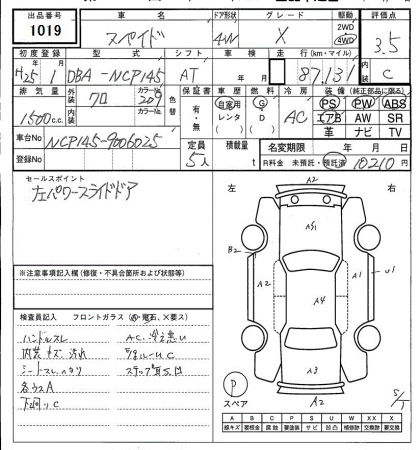 出品番号 車名 ドア形状 グレード 駆動 評価点
1019 スペイド 4W X 2WD 4WD 3.5
初度登録 型式 シフト 車検 走行(km・マイル) 内装
H25年 1月 DBA-NCP145 AT 年 月 87,131 C
排気量 外装 カラーNo. 色替 保証書 車歴 燃料 冷房 装備(純正部品に限る)
1500c.c. クロ 209 有・無 自家用 レンタ ( ) G D ( ) AC PS PW ABS
内装 カラーNo. エアB AW SR
革 ナビ TV
車台No. NCP145-9006025 定員 積載量 名変期限 年 月 日
登録No. 5人 t R料金 未預託・預託済 10210円
セールスポイント
左パワースライドドア
左 右
※注意事項記入欄(修復・不具合箇所および状態等)
検査員記入 フロントガラス(A・飛石、X要ス)
ハンドルスレ AC冷え悪い
内装キズ汚れ
各ウスA
下回りC
A2
A51
B2
A2
A4
A1
U1
A3
A2
P
スペア
A B C P S U W X XX
線キズ 要板金 腐蝕 要塗装 サビ 凹凸 補修跡 交換跡 要交換